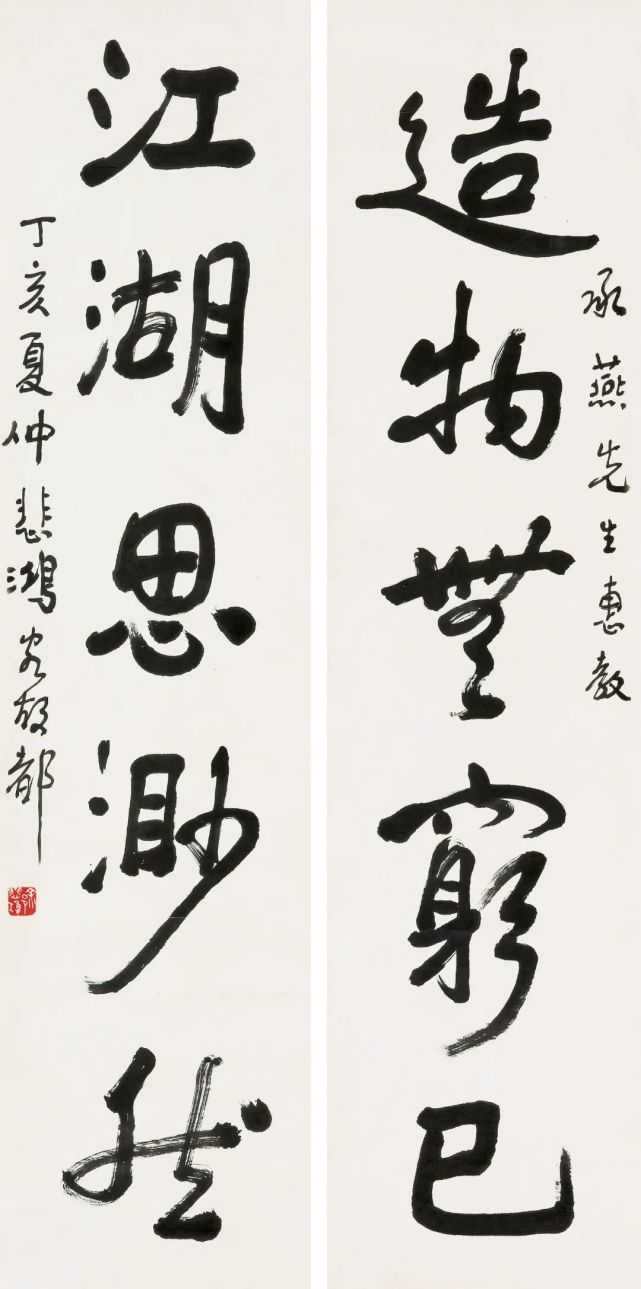 造物無窮已
承燕先生惠教
江湖思渺然
丁亥夏仲悲鴻客故都